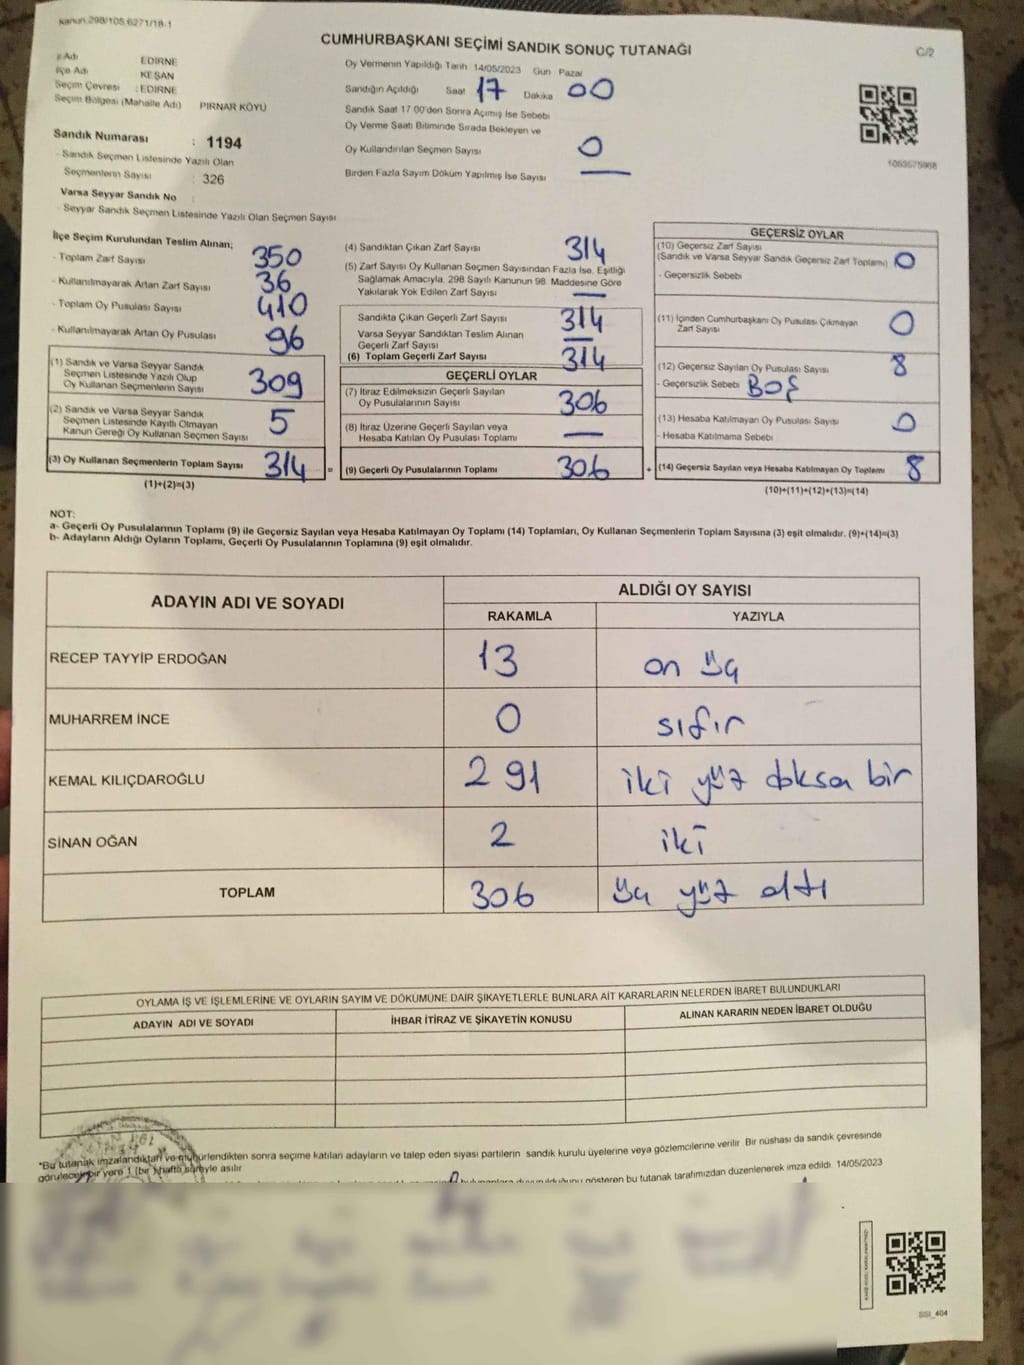 Kanun.298/105.6271/18-1
CUMHURBAŞKANI SEÇİMİ SANDIK SONUÇ TUTANAĞI
C/2
İl Adı EDİRNE
İlçe Adı KEŞAN
Seçim Çevresi : EDİRNE
Seçim Bölgesi (Mahalle Adı) PIRNAR KÖYÜ
Oy Vermenin Yapıldığı Tarih 14/05/2023 Gün Pazar
Sandığın Açıldığı Saat 17 Dakika 00
Sandık Saat 17.00'den Sonra Açılmış İse Sebebi
Oy Verme Saati Bitiminde Sırada Bekleyen ve
Oy Kullandırılan Seçmen Sayısı 0
Birden Fazla Sayım Döküm Yapılmış İse Sayısı —
Sandık Numarası : 1194
- Sandık Seçmen Listesinde Yazılı Olan
Seçmenlerin Sayısı : 326
Varsa Seyyar Sandık No
- Seyyar Sandık Seçmen Listesinde Yazılı Olan Seçmen Sayısı
İlçe Seçim Kurulundan Teslim Alınan;
- Toplam Zarf Sayısı 350
- Kullanılmayarak Artan Zarf Sayısı 36
- Toplam Oy Pusulası Sayısı 410
- Kullanılmayarak Artan Oy Pusulası 96
(1) Sandık ve Varsa Seyyar Sandık
Seçmen Listesinde Yazılı Olup
Oy Kullanan Seçmenlerin Sayısı 309
(2) Sandık ve Varsa Seyyar Sandık
Seçmen Listesinde Kayıtlı Olmayan
Kanun Gereği Oy Kullanan Seçmen Sayısı 5
(3) Oy Kullanan Seçmenlerin Toplam Sayısı 314
(1)+(2)=(3)
(4) Sandıktan Çıkan Zarf Sayısı 314
(5) Zarf Sayısı Oy Kullanan Seçmen Sayısından Fazla İse, Eşitliği
Sağlamak Amacıyla, 298 Sayılı Kanunun 98. Maddesine Göre
Yakılarak Yok Edilen Zarf Sayısı —
Sandıkta Çıkan Geçerli Zarf Sayısı 314
Varsa Seyyar Sandıktan Teslim Alınan
Geçerli Zarf Sayısı —
(6) Toplam Geçerli Zarf Sayısı 314
GEÇERLİ OYLAR
(7) İtiraz Edilmeksizin Geçerli Sayılan
Oy Pusulalarının Sayısı 306
(8) İtiraz Üzerine Geçerli Sayılan veya
Hesaba Katılan Oy Pusulası Toplamı —
= (9) Geçerli Oy Pusulalarının Toplamı 306
GEÇERSİZ OYLAR
(10) Geçersiz Zarf Sayısı
(Sandık ve Varsa Seyyar Sandık Geçersiz Zarf Toplamı) 0
- Geçersizlik Sebebi
(11) İçinden Cumhurbaşkanı Oy Pusulası Çıkmayan
Zarf Sayısı 0
(12) Geçersiz Sayılan Oy Pusulası Sayısı 8
- Geçersizlik Sebebi BOŞ
(13) Hesaba Katılmayan Oy Pusulası Sayısı 0
- Hesaba Katılmama Sebebi
+ (14) Geçersiz Sayılan veya Hesaba Katılmayan Oy Toplamı 8
(10)+(11)+(12)+(13)=(14)
NOT:
a- Geçerli Oy Pusulalarının Toplamı (9) ile Geçersiz Sayılan veya Hesaba Katılmayan Oy Toplamı (14) Toplamları, Oy Kullanan Seçmenlerin Toplam Sayısına (3) eşit olmalıdır. (9)+(14)=(3)
b- Adayların Aldığı Oyların Toplamı, Geçerli Oy Pusulalarının Toplamına (9) eşit olmalıdır.
ADAYIN ADI VE SOYADI ALDIĞI OY SAYISI
RAKAMLA YAZIYLA
RECEP TAYYİP ERDOĞAN 13 on üç
MUHARREM İNCE 0 sıfır
KEMAL KILIÇDAROĞLU 291 iki yüz doksan bir
SİNAN OĞAN 2 iki
TOPLAM 306 üç yüz altı
OYLAMA İŞ VE İŞLEMLERİNE VE OYLARIN SAYIM VE DÖKÜMÜNE DAİR ŞİKAYETLERLE BUNLARA AİT KARARLARIN NELERDEN İBARET BULUNDUKLARI
ADAYIN ADI VE SOYADI İHBAR İTİRAZ VE ŞİKAYETİN KONUSU ALINAN KARARIN NEDEN İBARET OLDUĞU
"Bu tutanak imzalandıktan ve mühürlendikten sonra seçime katılan adayların ve talep eden siyasi partilerin sandık kurulu üyelerine veya gözlemcilerine verilir. Bir nüshası da sandık çevresinde
görülecek bir yere 1 (bir) hafta süreyle asılır
gösteren bu tutanak tarafımızdan düzenlenerek imza edildi. 14/05/2023
SSI_404